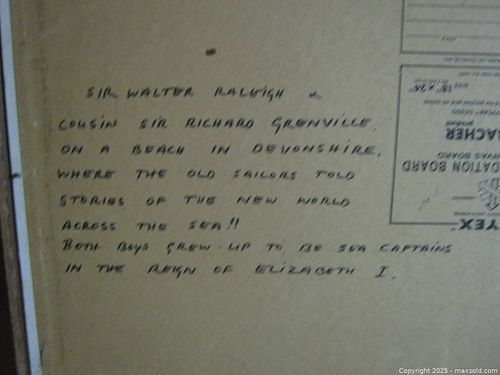 SIR WALTER RALEIGH &
COUSIN SIR RICHARD GRENVILLE,
ON A BEACH IN DEVONSHIRE,
WHERE THE OLD SAILORS TOLD
STORIES OF THE NEW WORLD
ACROSS THE SEA!!
BOTH BOYS GREW UP TO BE SEA CAPTAINS
IN THE REIGN OF ELIZABETH I.
18" x 24"
BACHER
product
DATION BOARD
VAS BOARD
YEX
Copyright 2025 - maxsold.com